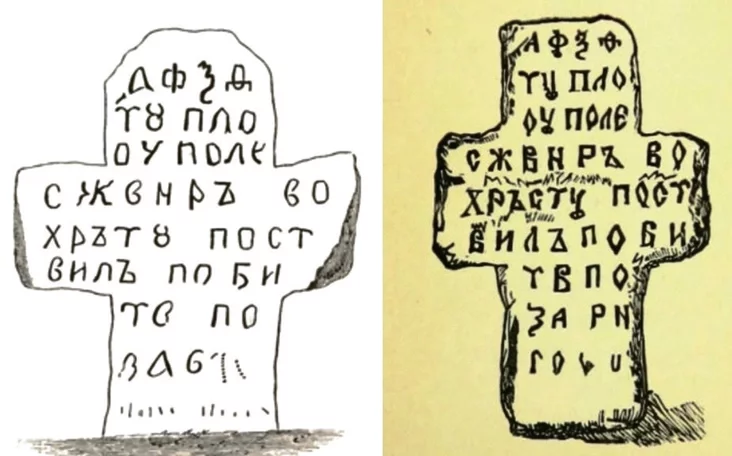 ҂АФѮѲ
ТȢ ПЛО
ОУ ПОЛЕ
СЖВНРЪ ВО
ХРЪТȢ ПОСТ
ВИЛЪ ПО БИ
ТВ ПО
ЗАБ
АФѮѲ
ТЦ ПЛО
ОЦ ПОЛЕ
СЖВНРЪ ВО
ХРЪСТЦ ПОСТ
ВИЛЪ ПО БИ
ТВ ПО
ЗА РН